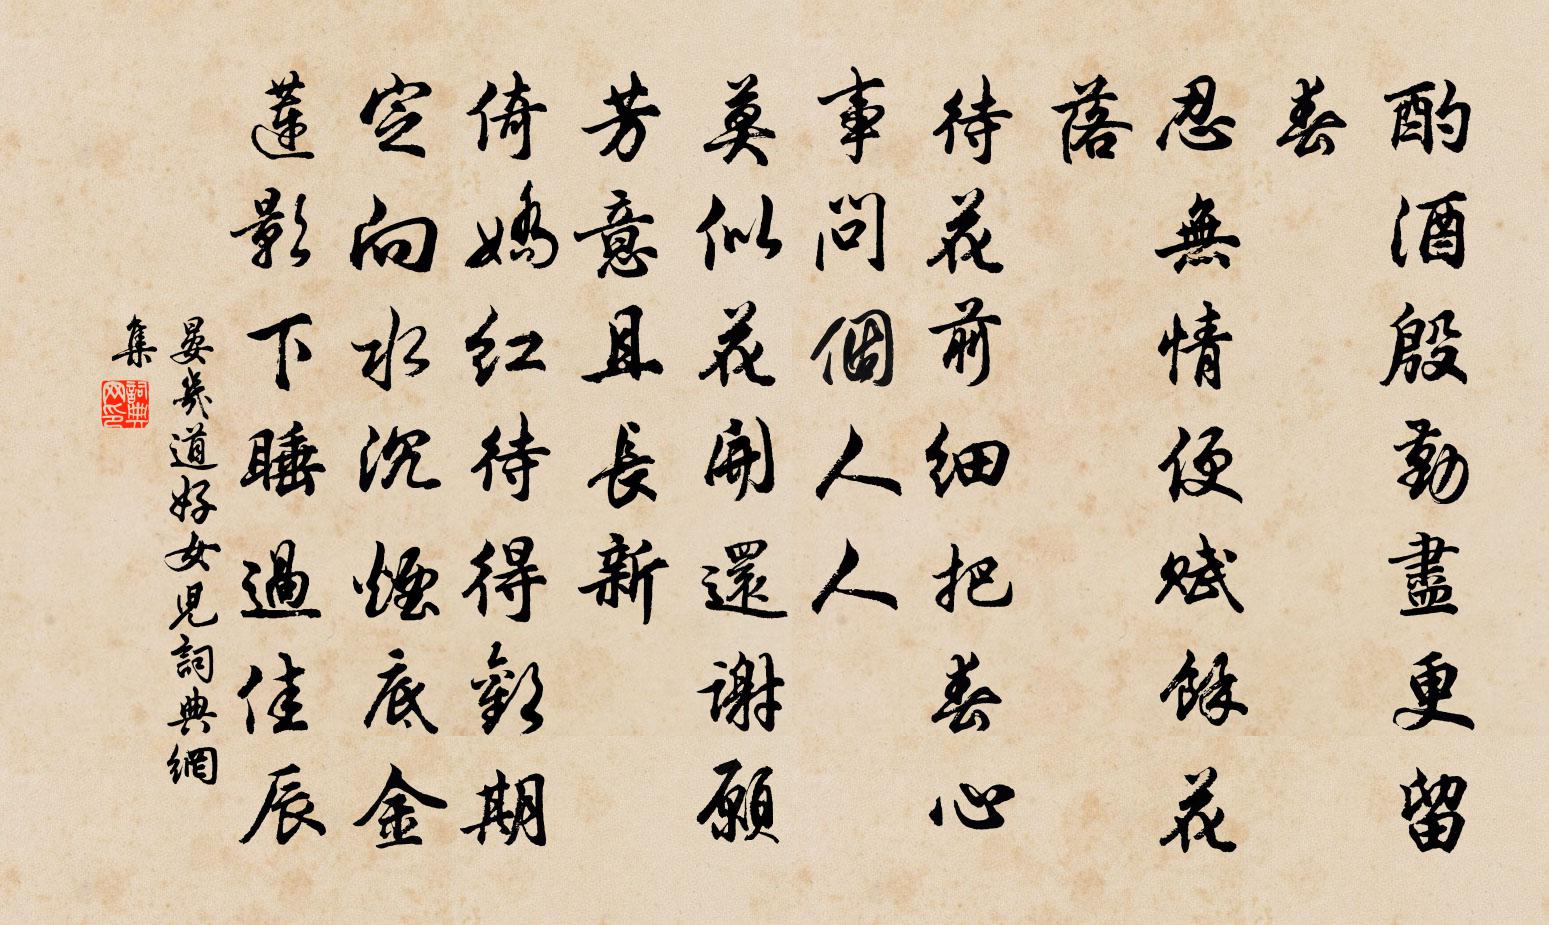 酌酒殷勤盡更留
春
忍無情便賦餘花
落
待花前細把春心
事問個人人
莫似花開還謝願
芳意且長新
倚嬌紅待得歡期
定向水沉煙底金
蓮影下睡過佳辰
晏幾道好女兒詞典網
集
詞典
网印